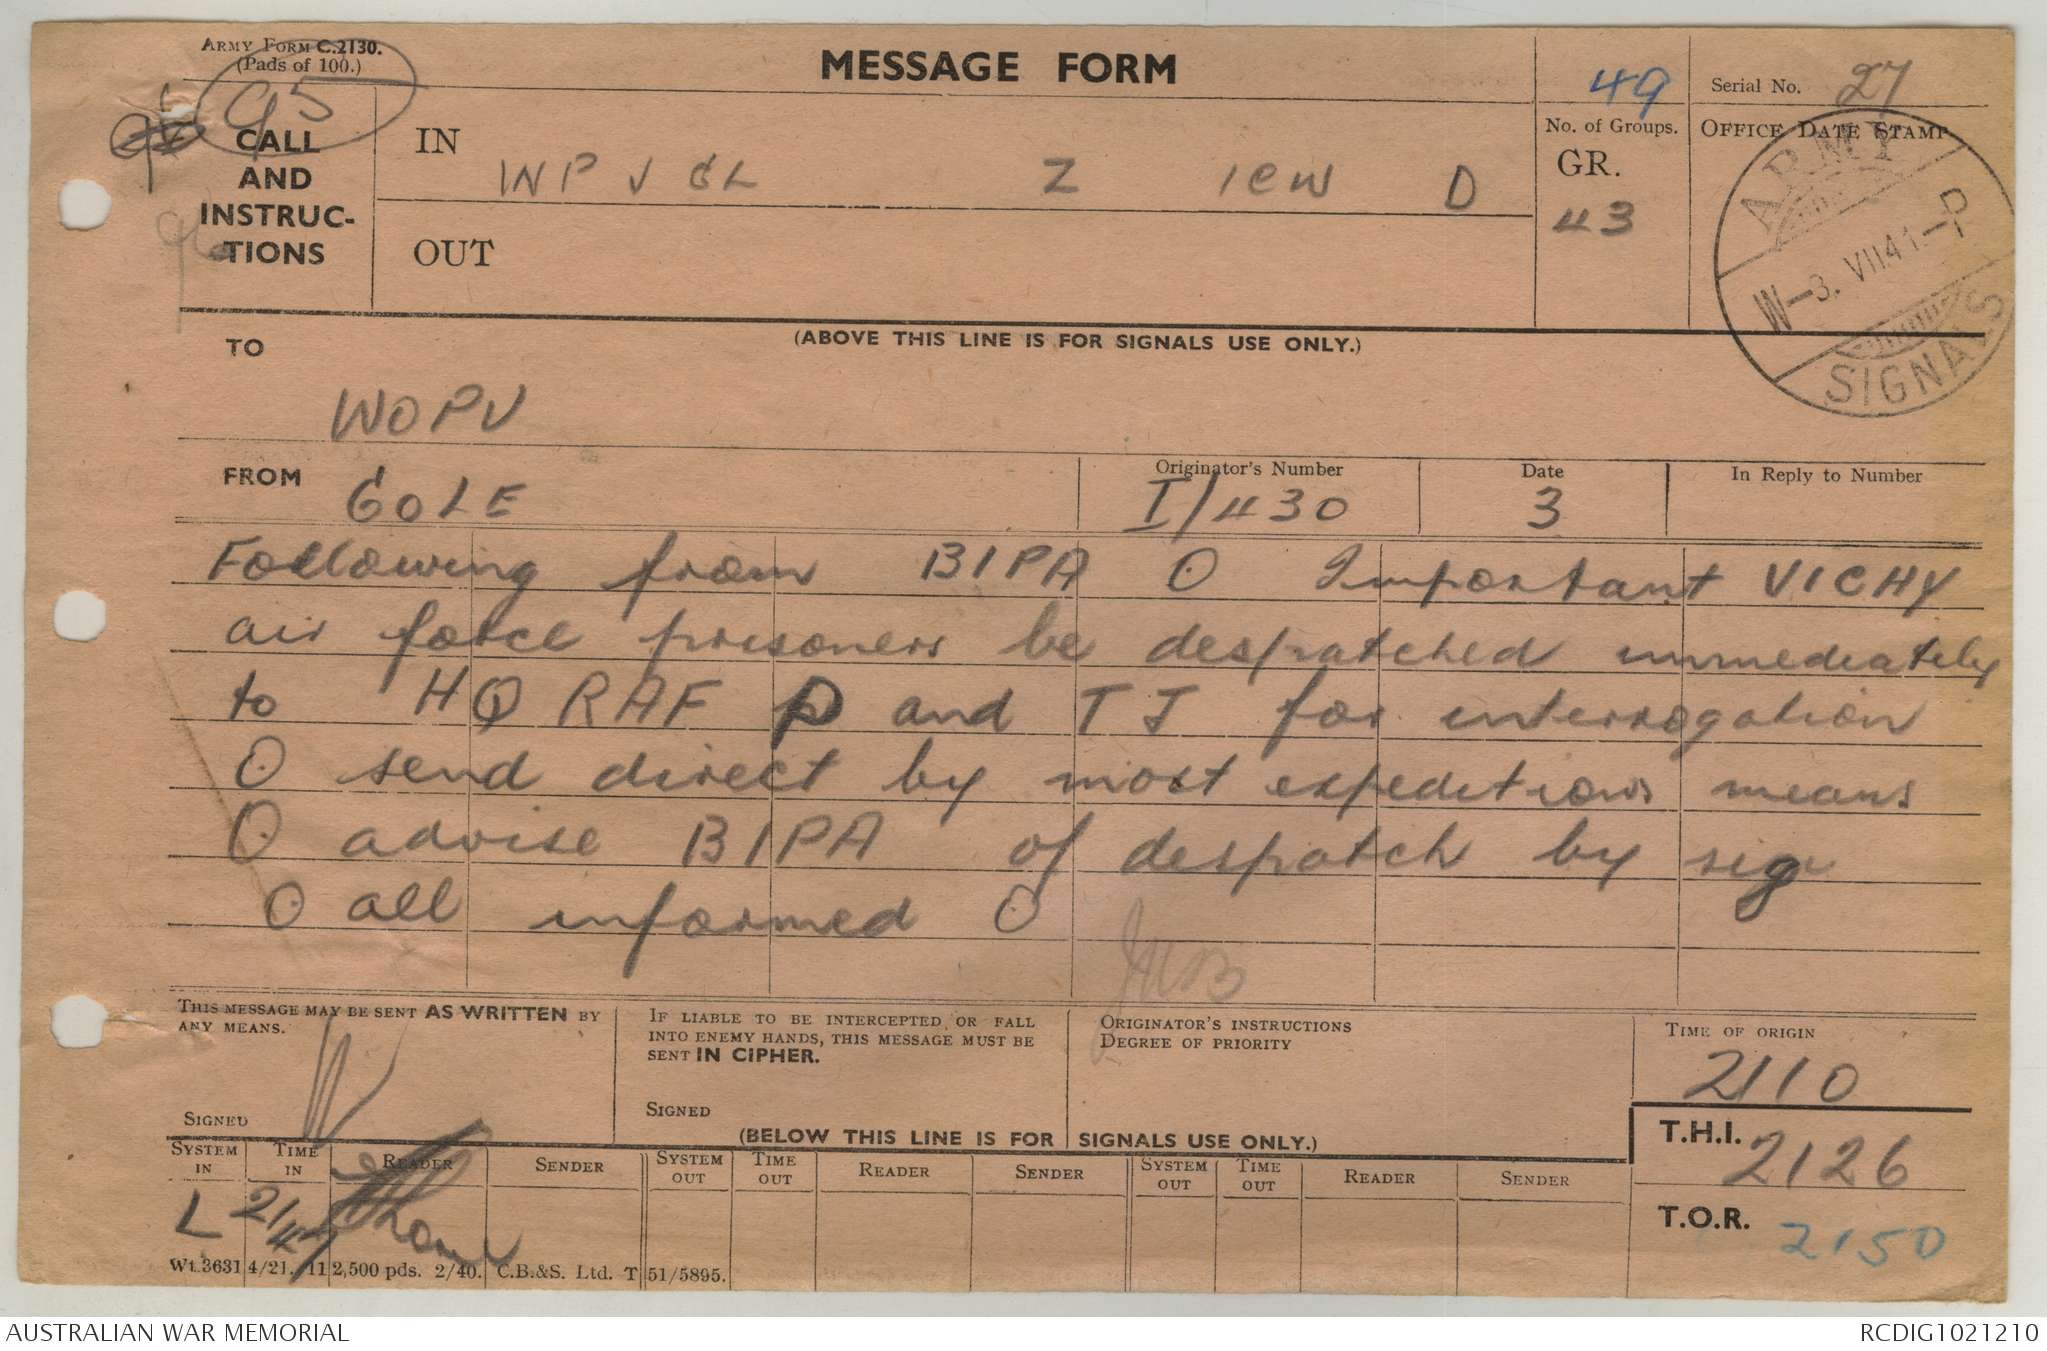 ARMY FORM C.2130.
(Pads of 100.)
MESSAGE FORM
95
CALL
AND
INSTRUC-
TIONS
IN
WPV GL Z ICW D
OUT
49
No. of Groups.
GR.
43
Serial No. 27
OFFICE DATE STAMP
ARMY
W-3. VII 41-P
SIGNALS
(ABOVE THIS LINE IS FOR SIGNALS USE ONLY.)
TO
WOPV
FROM
GOLE
Originator's Number
I/430
Date
3
In Reply to Number
Following from BIPA O Important VICHY
air force prisoners be despatched immediately
to HQ RAF P and TJ for interrogation
O send direct by most expeditious means
O advise BIPA of despatch by sig
O all informed O
THIS MESSAGE MAY BE SENT AS WRITTEN BY
ANY MEANS.
SIGNED
IF LIABLE TO BE INTERCEPTED OR FALL
INTO ENEMY HANDS, THIS MESSAGE MUST BE
SENT IN CIPHER.
SIGNED
ORIGINATOR'S INSTRUCTIONS
DEGREE OF PRIORITY
TIME OF ORIGIN
2110
(BELOW THIS LINE IS FOR SIGNALS USE ONLY.)
T.H.I. 2126
T.O.R. 2150
SYSTEM IN
TIME IN
READER
SENDER
SYSTEM OUT
TIME OUT
READER
SENDER
SYSTEM OUT
TIME OUT
READER
SENDER
L 2147
Wt.3631 4/21. 112,500 pds. 2/40. C.B.&S. Ltd. T 51/5895.
AUSTRALIAN WAR MEMORIAL
RCDIG1021210